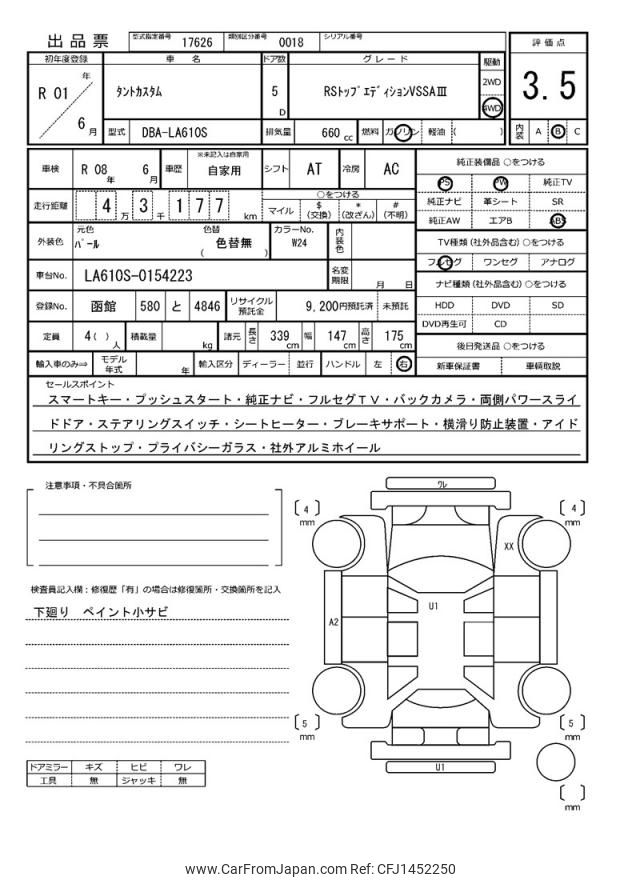 出品票 型式指定番号 17626 類別区分番号 0018 シリアル番号
評価点
3.5
内装 A B C
初年度登録 車名 ドア数 グレード 駆動
R 01 年 6 月
タントカスタム 5 D RSトップエディションVSSAⅢ 2WD 4WD
型式 DBA-LA610S 排気量 660 cc 燃料 ガソリン 軽油 ( )
車検 R 08 年 6 月 車歴 ※未記入は自家用 自家用 シフト AT 冷房 AC
走行距離 4 万 3 千 1 7 7 km
○をつける
マイル $(交換) *(改ざん) #(不明)
外装色 元色 パール 色替 ( 色替無 ) カラーNo. W24 内装色
車台No. LA610S-0154223 名変期限 月 日
登録No. 函館 580 と 4846 リサイクル預託金 9,200円預託済 未預託
定員 4( ) 人 積載量 kg 諸元 長さ 339 cm 幅 147 cm 高さ 175 cm
輸入車のみ⇒ モデル年式 年 輸入区分 ディーラー 並行 ハンドル 左 右
純正装備品 ○をつける
PS PW 純正TV
純正ナビ 革シート SR
純正AW エアB ABS
TV種類 (社外品含む) ○をつける
フルセグ ワンセグ アナログ
ナビ種類 (社外品含む) ○をつける
HDD DVD SD
DVD再生可 CD
後日発送品 ○をつける
新車保証書 車輌取説
セールスポイント
スマートキー・プッシュスタート・純正ナビ・フルセグTV・バックカメラ・両側パワースライ
ドドア・ステアリングスイッチ・シートヒーター・ブレーキサポート・横滑り防止装置・アイド
リングストップ・プライバシーガラス・社外アルミホイール
注意事項・不具合箇所
検査員記入欄：修復歴「有」の場合は修復箇所・交換箇所を記入
下廻り ペイント小サビ
ドアミラー キズ ヒビ ワレ
工具 無 ジャッキ 無
ワレ
[ 4 ] mm
[ 4 ] mm
XX
U1
A2
[ 5 ] mm
[ 5 ] mm
U1
[ ] mm
www.CarFromJapan.com Ref: CFJ1452250